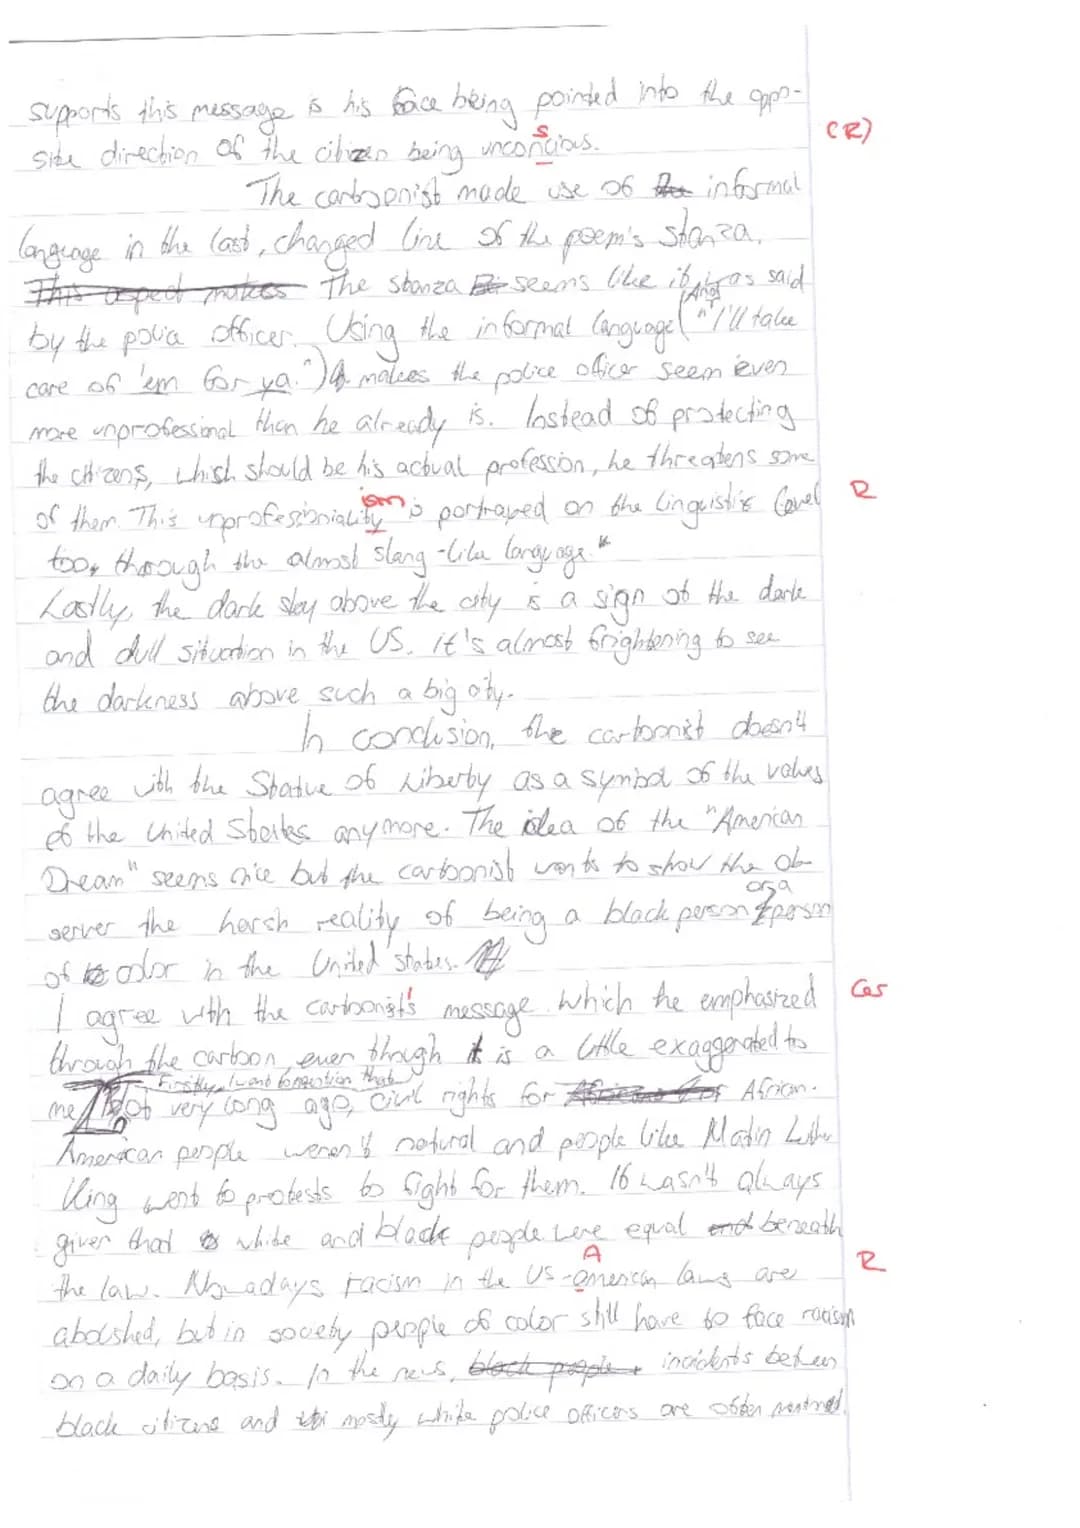 supports this message is his face being pointed into the oppo-
site direction of the citizen being unconcious. s (R)
The cartoonist made use of informal
language in the last, changed line of the poem's stanza.
This aspect makes The stanza seems like it was said
by the police officer. Using the informal language ("And I'll take
care of 'em for ya.") makes the police officer seem even
more unprofessional than he already is. Instead of protecting
the citizens, which should be his actual profession, he threatens some
of them. This unprofessionality ism is portrayed on the linguistic level R
too, through the almost slang-like language.*
Lastly, the dark sky above the city is a sign of the dark
and dull situation in the US. it's almost frightening to see
the darkness above such a big city.
In conclusion, the cartoonist doesn't
agree with the Statue of Liberty as a symbol of the values
of the United States anymore. The idea of the "American
Dream" seems nice but the cartoonist wants to show the ob-
server the harsh reality of being a black person or a person
of color in the United States.
I agree with the cartoonist's message which he emphasized Ges
through the cartoon even though it is a little exaggerated to
me. Firstly, I want to mention that
Not very long ago, civil rights for African-
American people weren't natural and people like Matin Luther
King went to protests to fight for them. It wasn't always
given that white and black people were equal and beneath
the law. Nowadays racism in the US-american A laws are R
abolshed, but in society people of color still have to face racism
on a daily basis. In the news, black people incidents between
black citizens and mostly white police officers are often mentioned.